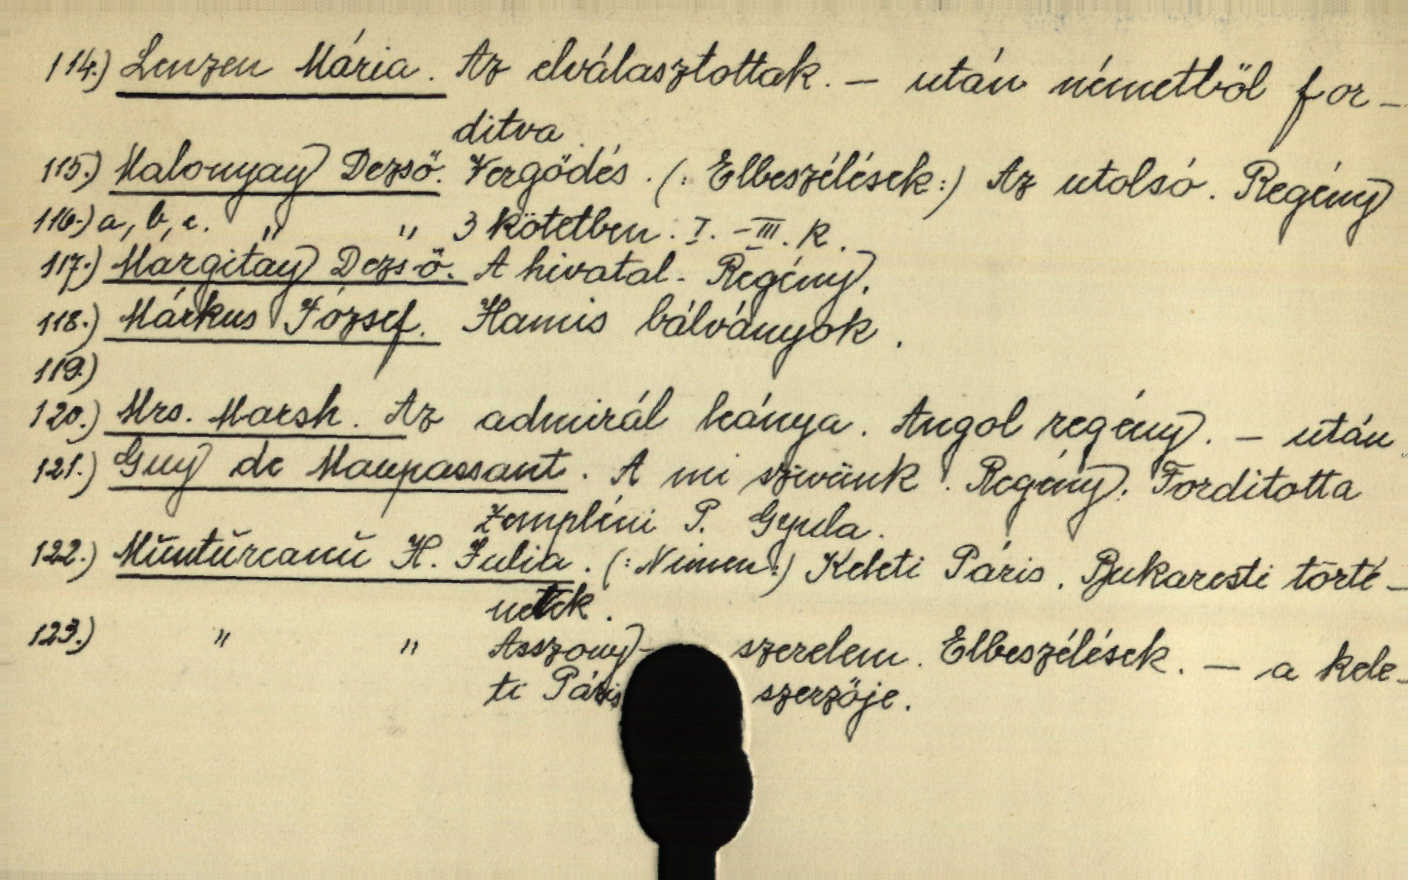 114.) Lenzen Mária. Az elválasztottak. — után németből for-
ditva.
115.) Malonyay Dezső. Vergődés. (: Elbeszélések:) Az utolsó. Regény
116.) a, b, c. " " 3 kötetben. I. - III. k.
117.) Margitay Dezső. A hivatal. Regény.
118.) Márkus József. Hamis bálványok.
119.)
120.) Mrs. Marsh. Az admirál leánya. Angol regény. — után
121.) Guy de Maupassant. A mi szivünk. Regény. Forditotta
Zempléni P. Gyula.
122.) Muntureanu H. Julia. (: Nimen:) Keleti Páris. Bukaresti törté-
netek.
123.) " " Asszony- szerelem. Elbeszélések. — a kele-
ti Páris szerzője.